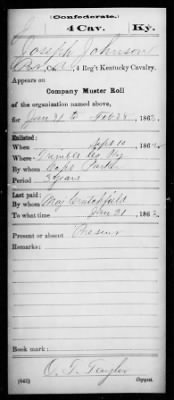 (Confederate.)
4 Cav. Ky.
Joseph Johnson
Co., 4 Reg't Kentucky Cavalry.
Appears on
Company Muster Roll
of the organization named above,
for Jan 21 to Feb 28, 186
Enlisted:
When Sept 10, 186
Where Trimble Co Ky
By whom Capt Parks
Period 3 years
Last paid:
By whom Maj Crutchfield
To what time Jan 21, 186
Present or absent Present
Remarks:
Book mark:
(642) Copyist.